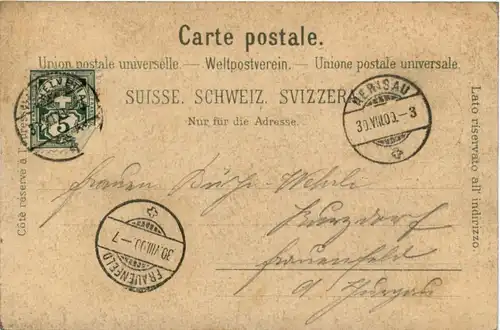 Carte postale.
Union postale universelle. — Weltpostverein. — Unione postale universale.
SUISSE. SCHWEIZ. SVIZZERA.
Nur für die Adresse.
Côté réservé à l'adresse.
Lato riservato all' indirizzo.
HELVETIA
5
HERISAU
30.VIII.00.–3
FRAUENFELD
30.VIII.00.–7
Frauen
Kurzdorf
Frauenfeld
Thurgau